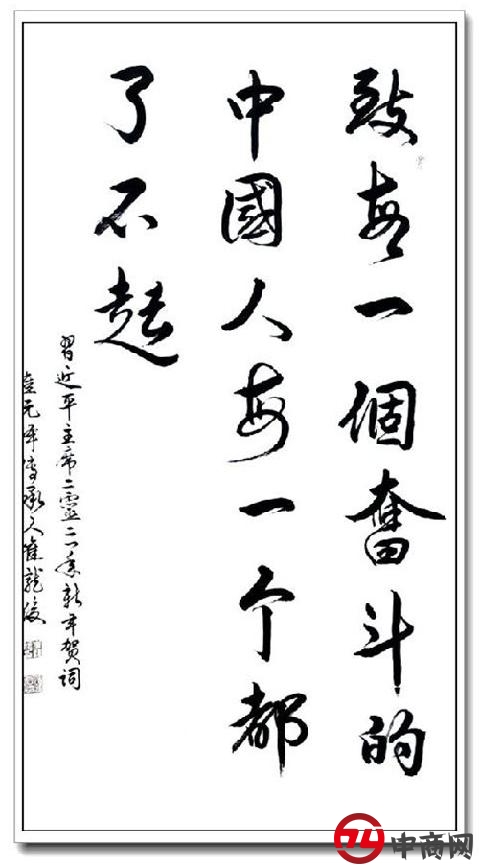 致每一個奮斗的
中國人每一个都
了不起
習近平主席二零二一年新年贺词
元傳承人崔龍
中商网